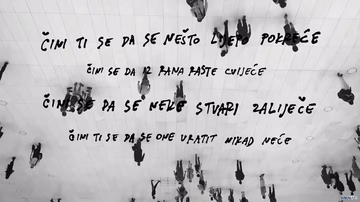 ČINI TI SE DA SE NEŠTO LJEPO POKREĆE
ČINI SE DA IZ RANA RASTE CVIJEĆE
ČINI SE DA SE NEKE STVARI ZALIJEČE
ČINI TI SE DA SE ONE VRATIT NIKAD NEĆE